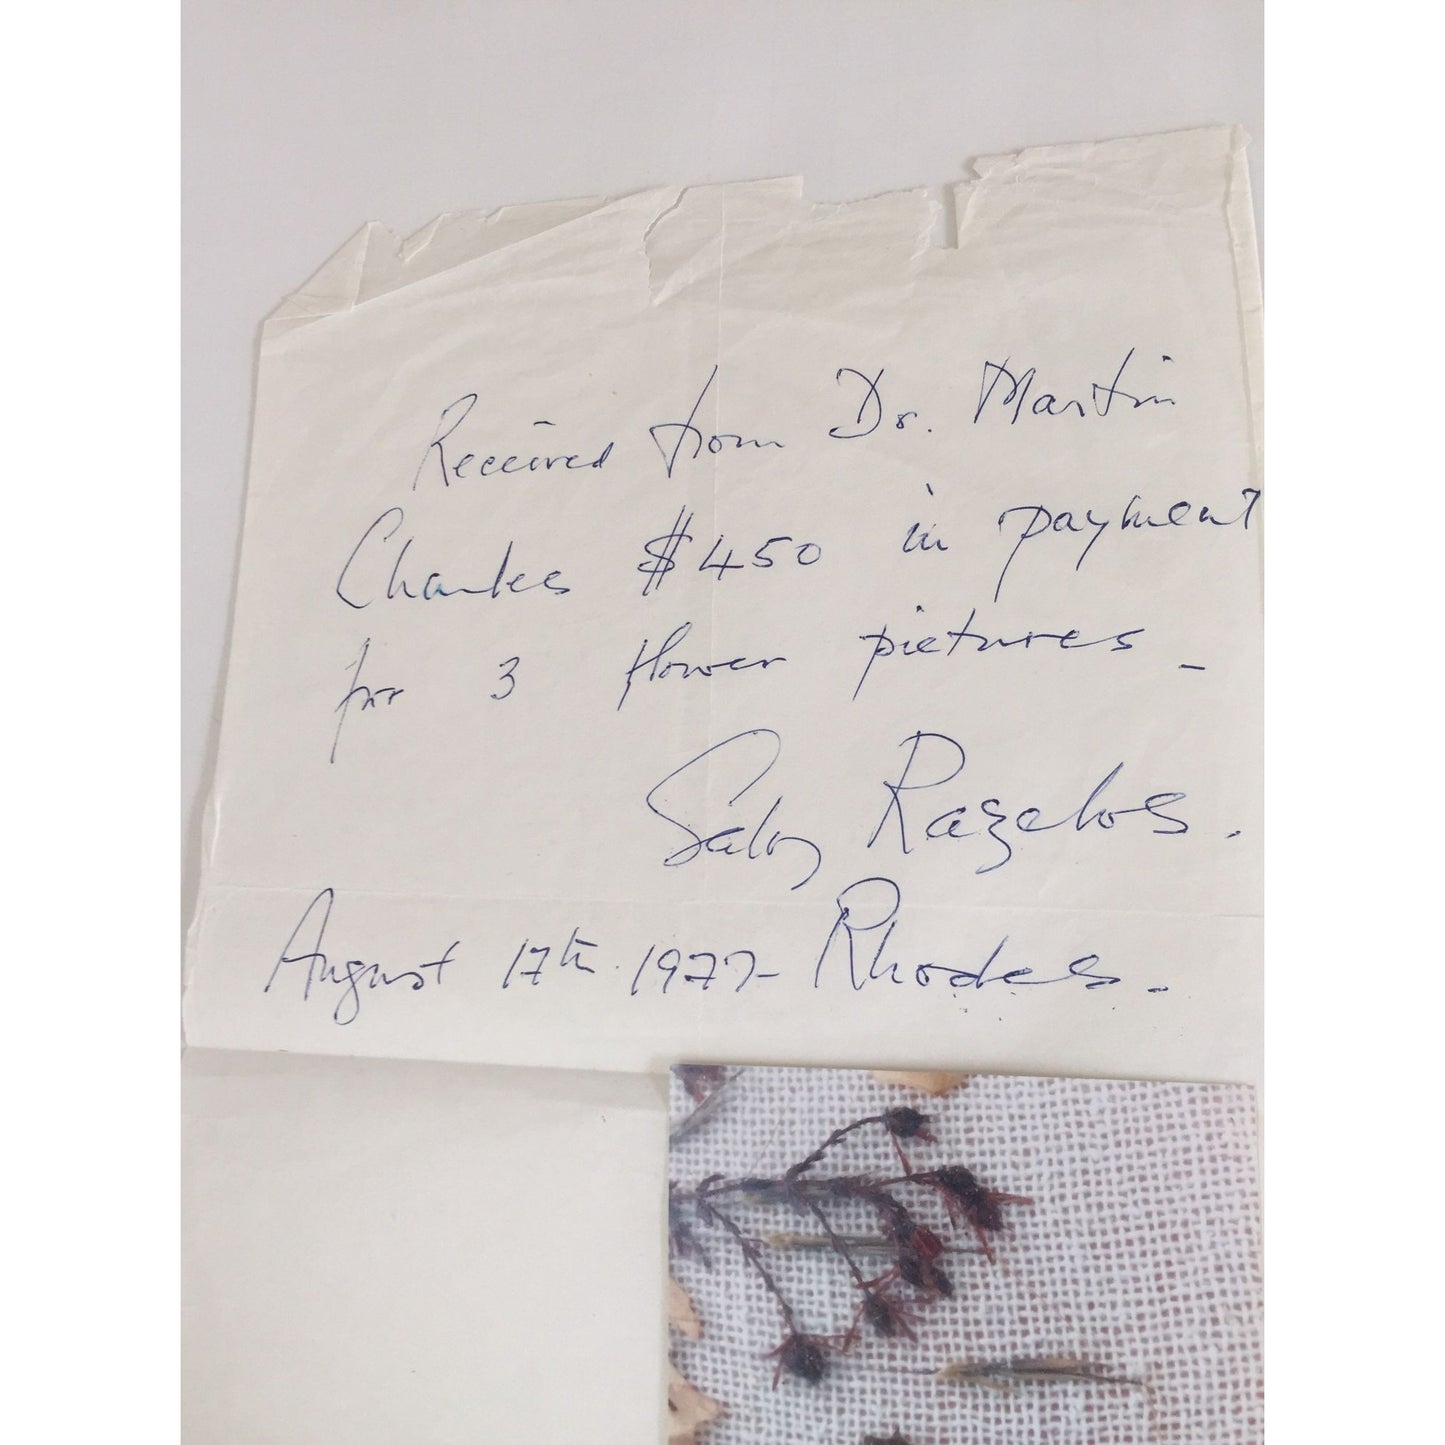 Received from Dr. Martin
Charles $450 in payment
for 3 flower pictures -
Razelos.
August 17th. 1977- Rhodes.